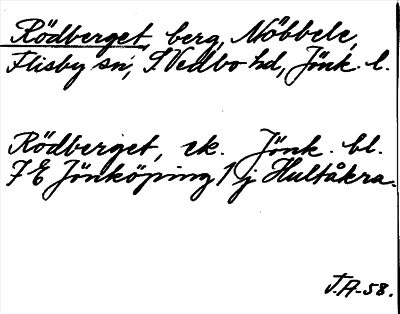 Rödberget, berg, Möbbele,
Flisby sn, S. Vedbo hd, Jönk. l.
Rödberget, ek. Jönk. bl.
7 E Jönköping 1 j Hultåkra.
J.A-58.